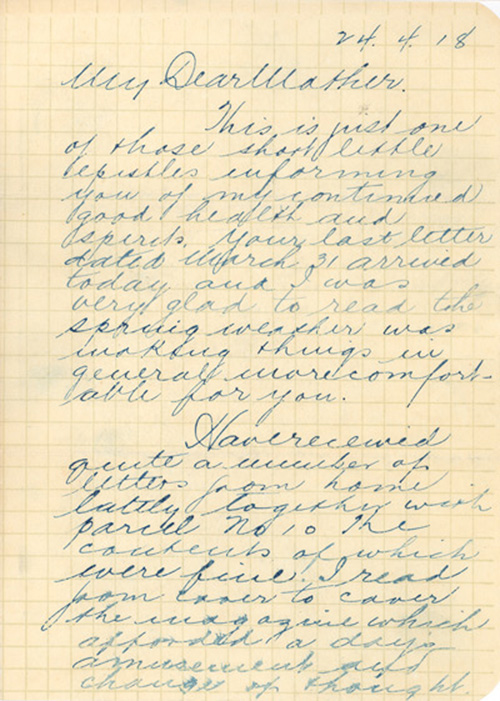 24. 4. 18
My Dear Mother.
This is just one
of those short little
epistles informing
you of my continued
good health and
spirits. Your last letter
dated March 31 arrived
today and I was
very glad to read the
spring weather was
making things in
general more comfort-
able for you.
Have received
quite a number of
letters from home
lately together with
parcel No 10 The
contents of which
were fine. I read
from cover to cover
the magazine which
afforded a days
amusement and
change of thought.